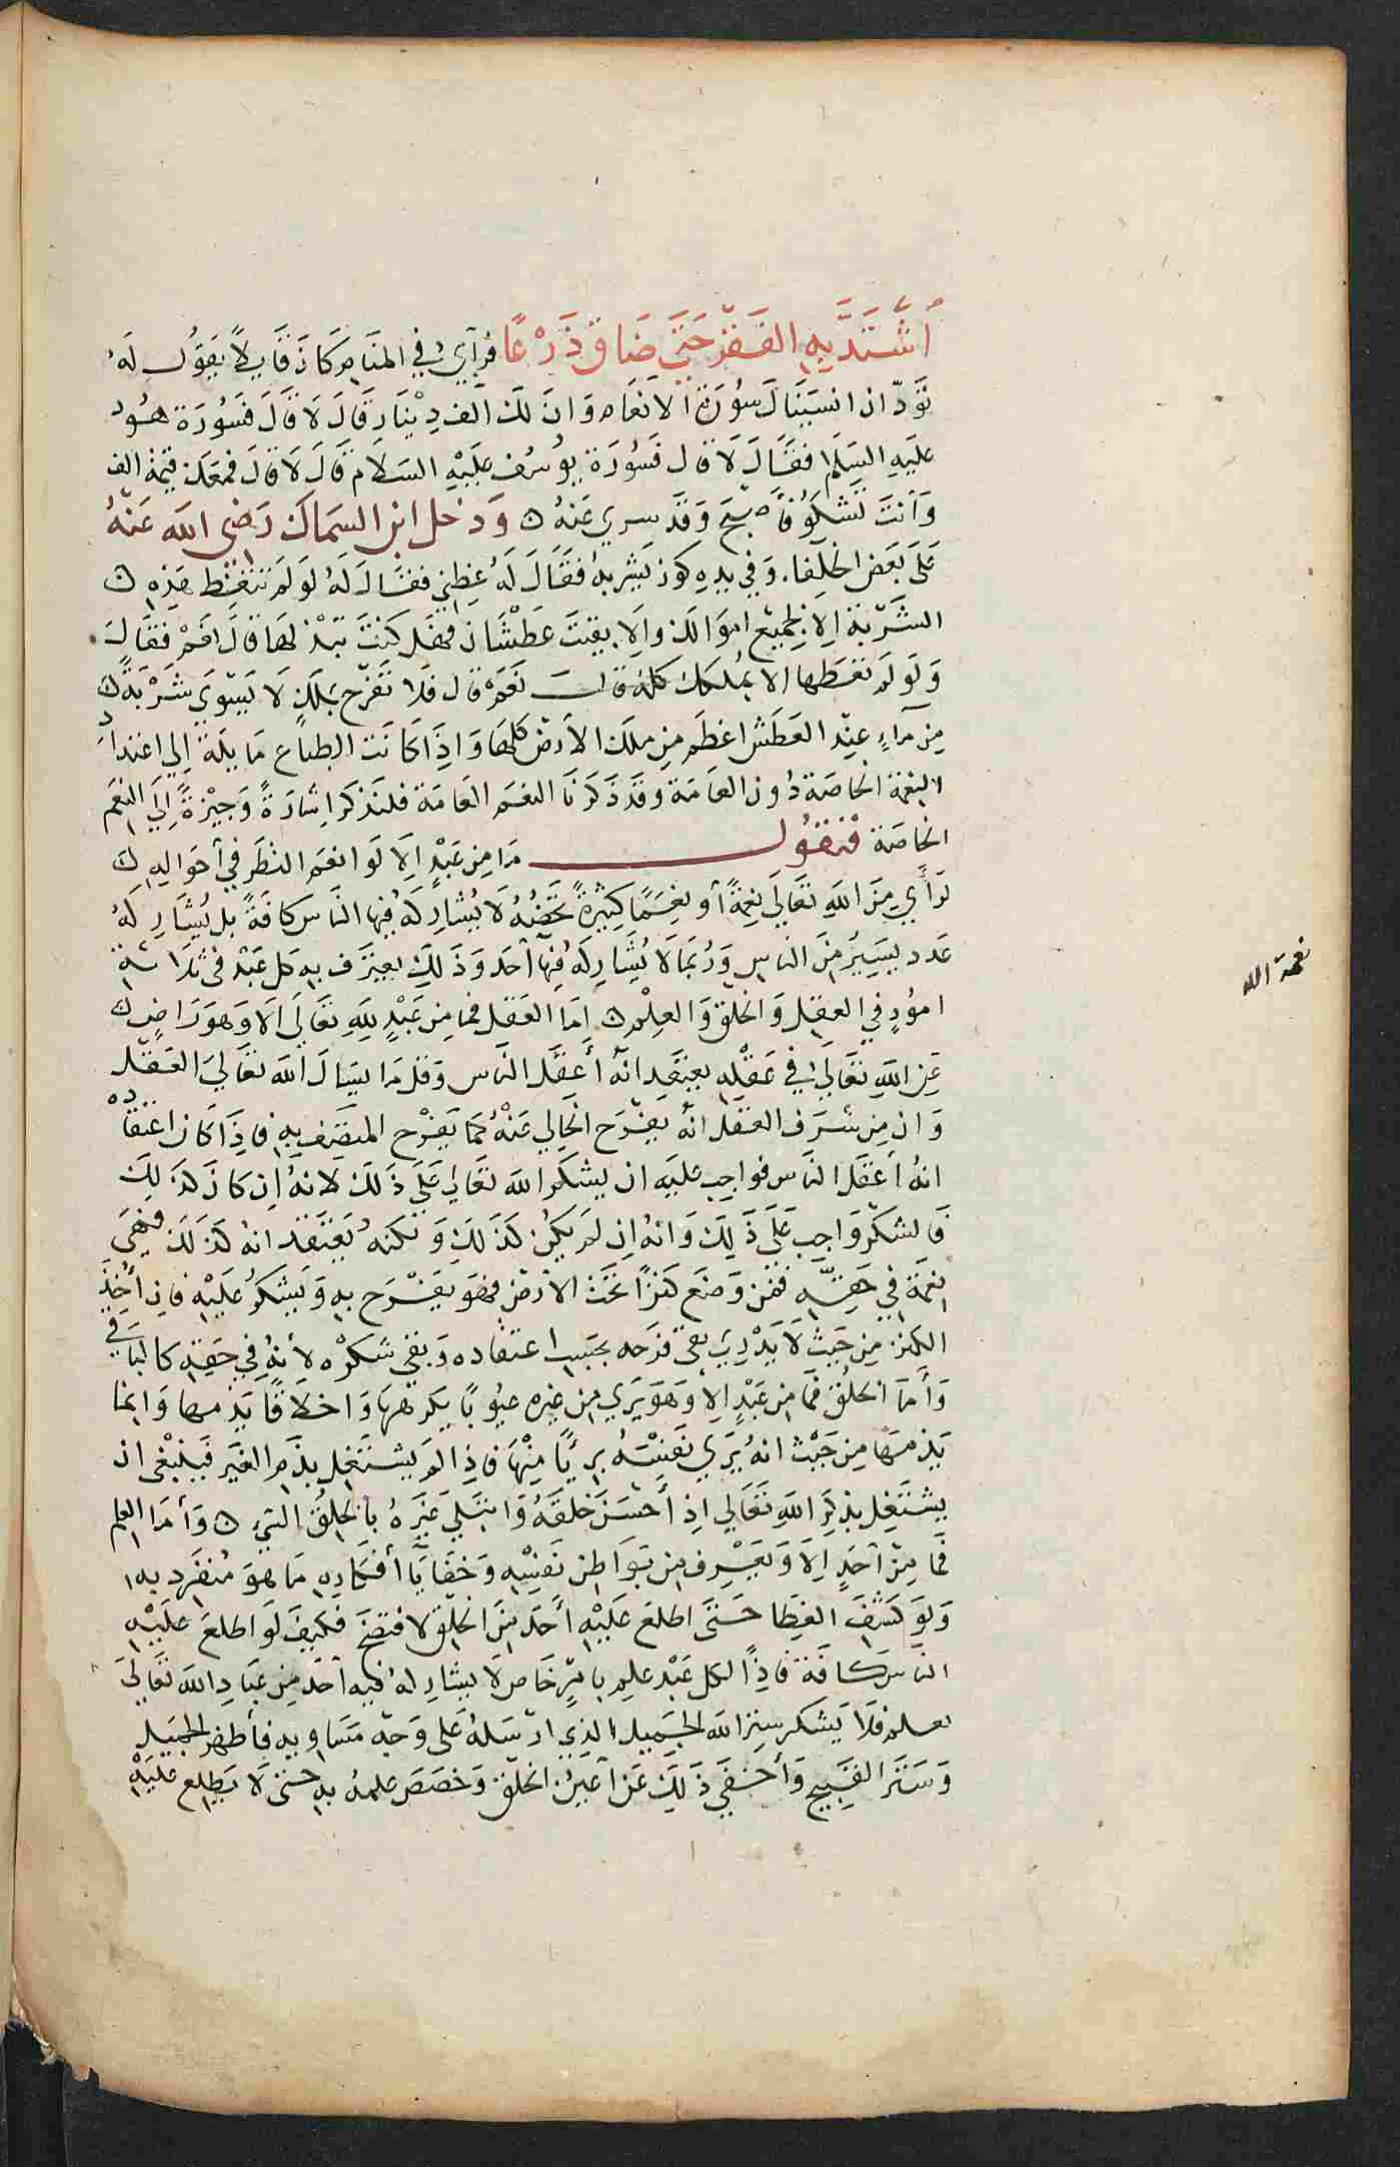 اشتد به الفقر حتى ضاق ذرعا فرآى في المنام كان قايلا يقول له
تود ان انسيناك سورة الانعام وان لك الف دينار قال لا قال فسورة هود
عليه السلم فقال لا قال فسورة يوسف عليه السلام قال لا قال فمعك قيمة الف
وانت تشكو فأصبح وقد سري عنه ن ودخل ابن السماك رضي الله عنه
على بعض الخلفا. وفي يده كوز يشربه فقال له عظني فقال له لو لم تعط هذه ن
الشربة الا بجميع اموالك والا بقيت عطشان فهل كنت تبذلها قال نعم فقال
ولو لم تعطها الا بملكك كله قال نعم قال فلا تفرح بملك لا يسوى شربة ن
من مآء عند العطش اعظم من ملك الأرض كلها واذا كانت الطباع مايلة الى اعتداد
النعمة الخاصة دون العامة وقد ذكرنا النعم العامة فلنذكر اشارة وجيزة إلى النعم
الخاصة فنقول ما من عبد الا لو انعم النظر في أحواله ن
لرأي من الله تعالى نعمة أو نعما كثيرة تخصه لا يشاركه فيها الناس كافة بل يشاركه
عدد يسير من الناس وربما لا يشاركه فيها أحد وذلك يعترف به كل عبد في ثلاثة
امور في العقل والخلق والعلم ن اما العقل فما من عبد لله تعالى الا وهو راض ن
عن الله تعالى في عقله يعتقد انه أعقل الناس وقل ما يسال الله تعالى العقل
وان من شرف العقل انه يفرح الخالي عنه كما يفرح المتصف به فاذا كان اعتقاده
انه أعقل الناس فواجب عليه ان يشكر الله تعالى على ذلك لانه ان كان كذلك
فالشكر واجب على ذلك وانه ان لم يكن كذلك ولكنه يعتقد انه كذلك فهي
نعمة في حقه فمن وضع كنزا تحت الارض فهو يفرح به ويشكر عليه فان أخذ
الكنز من حيث لا يدري بقى فرحه بحسب اعتقاده وبقى شكره لأنه في حقه كالباقي
وأما الخلق فما من عبد الا وهو يرى من غيره عيوبا يكرهها واخلاقا يذمها وانما
يذمها من حيث انه يرى نفسه بريا منها فاذا لم يشتغل بذم الغير فينبغى ان
يشتغل بذكر الله تعالى اذ أحسن خلقه وابتلى غيره بالخلق السي ن وأما العلم
فما من أحد الا ويعرف من بواطن نفسه وخفايا أفكاره ما هو منفرد به
ولو كشف الغطا حتى اطلع عليه أحد من الخلق لافتضح فكيف لو اطلع عليه
الناس كافة فاذا لكل عبد علم بامر خاص لا يشاركه فيه احد من عباد الله تعالى
فلم لا يشكر ستر الله الجميل الذي ارسله على وجه مساويه فأظهر الجميل
وستر القبيح وأخفى ذلك عن آعين الخلق وخصص علمه به حتى لا يطلع عليه
نعمة الله